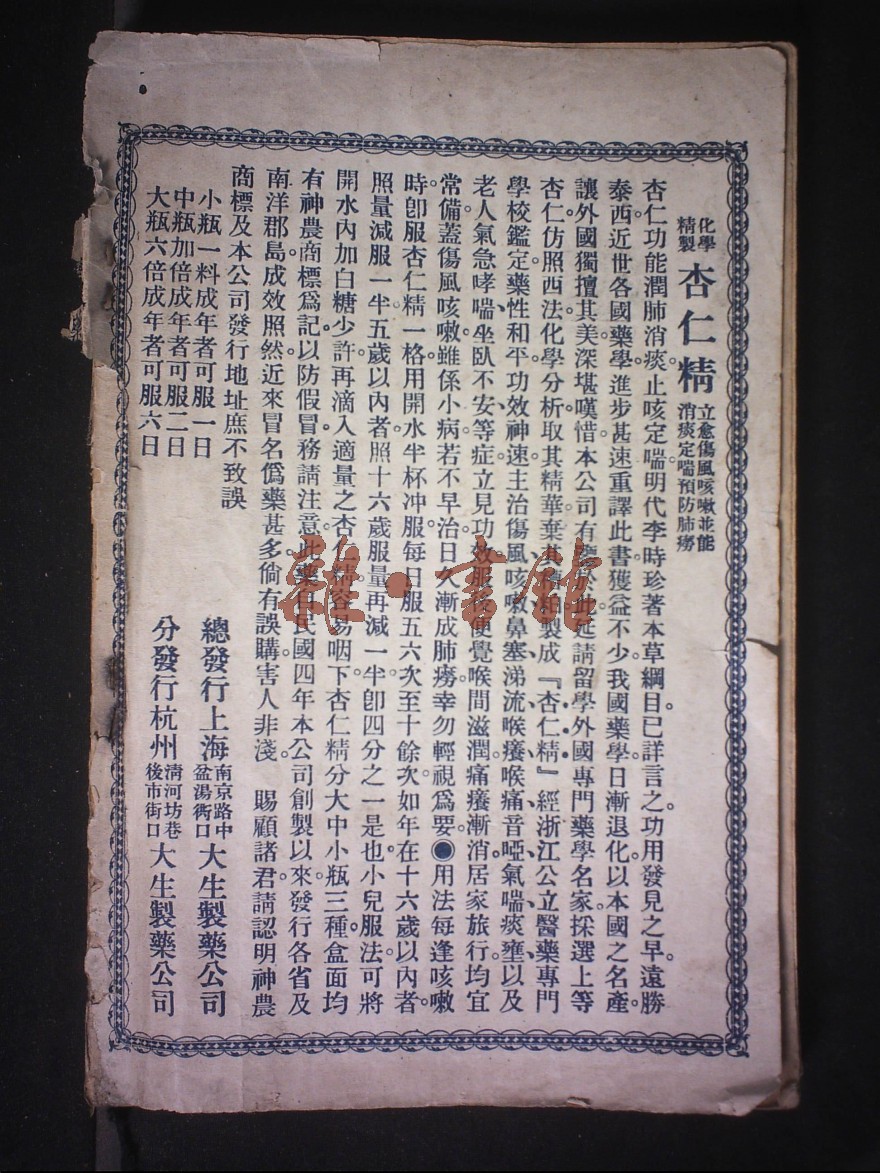 化學精製 杏仁精 立愈傷風咳嗽並能消痰定喘預防肺癆
杏仁功能潤肺消痰。止咳定喘。明代李時珍著本草綱目。已詳言之。功用發見之早。遠勝
泰西。近世各國藥學進步甚速。重譯此書。獲益不少。我國藥學日漸退化。以本國之名產。
讓外國獨擅其美。深堪嘆惜。本公司有於此。延請留學外國專門藥學名家。採選上等
杏仁。仿照西法化學分析。取其精華。棄其製成『杏仁精』經浙江公立醫藥專門
學校鑑定。藥性和平。功效神速。主治傷風咳嗽、鼻塞涕流、喉癢喉痛、音啞氣喘、痰壅、以及
老人氣急哮喘、坐臥不安、等症。立見功效。服後便覺喉間滋潤。痛癢漸消。居家旅行。均宜
常備。蓋傷風咳嗽。雖係小病。若不早治。日久漸成肺癆。幸勿輕視爲要。●用法每逢咳嗽
時。卽服杏仁精一格。用開水半杯冲服。每日服五六次至十餘次。如年在十六歲以內者。
照量減服一半。五歲以內者。照十六歲服量再減一半。卽四分之一是也。小兒服法。可將
開水內加白糖少許。再滴入適量之杏仁精。容易咽下。杏仁精分大中小瓶三種。盒面均
有神農商標爲記。以防假冒。務請注意。此藥自民國四年本公司創製以來。發行各省及
南洋郡島。成效照然。近來冒名僞藥甚多。倘有誤購。害人非淺。 賜顧諸君。請認明神農
商標及本公司發行地址。庶不致誤
小瓶一料成年者可服一日
中瓶加倍成年者可服二日
大瓶六倍成年者可服六日
總發行上海南京路中盆湯衖口大生製藥公司
分發行杭州淸河坊巷後市街口大生製藥公司
雜·書館